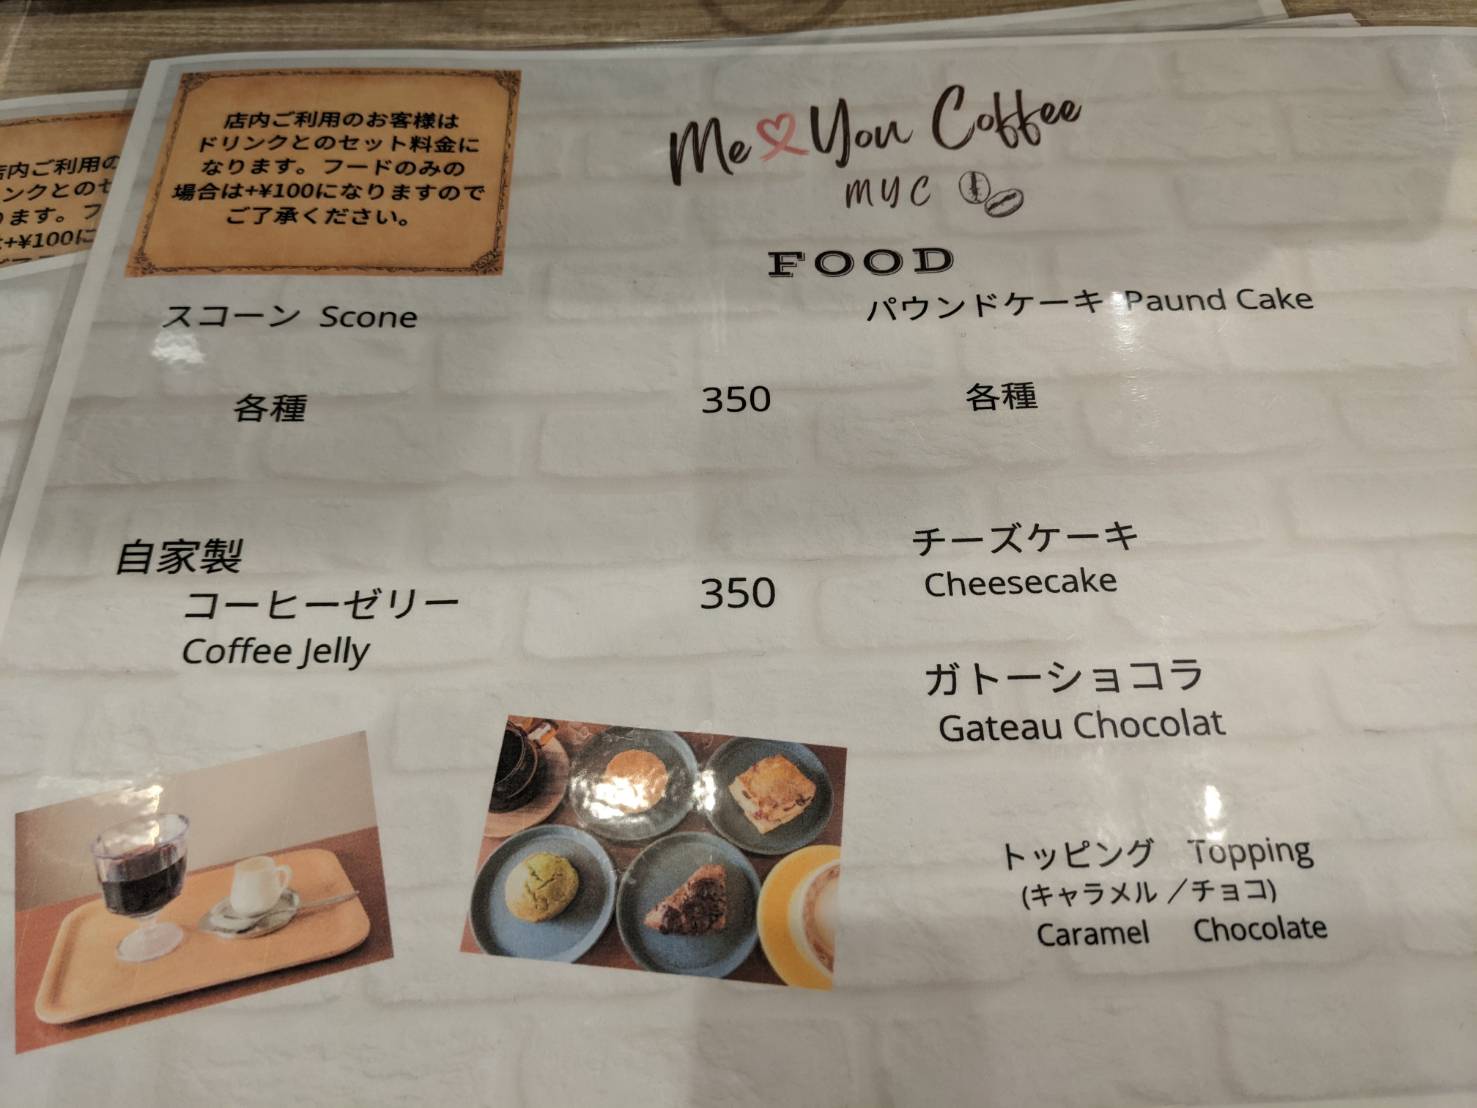 店内ご利用のお客様は
ドリンクとのセット料金に
なります。フードのみの
場合は+¥100になりますので
ご了承ください。
Me You Coffee
MYC
FOOD
スコーン Scone
各種 350
自家製
コーヒーゼリー 350
Coffee Jelly
パウンドケーキ Paund Cake
各種
チーズケーキ
Cheesecake
ガトーショコラ
Gateau Chocolat
トッピング Topping
(キャラメル／チョコ)
Caramel Chocolate
内ご利用の
ンクとのセ
ます。フ
+¥100に